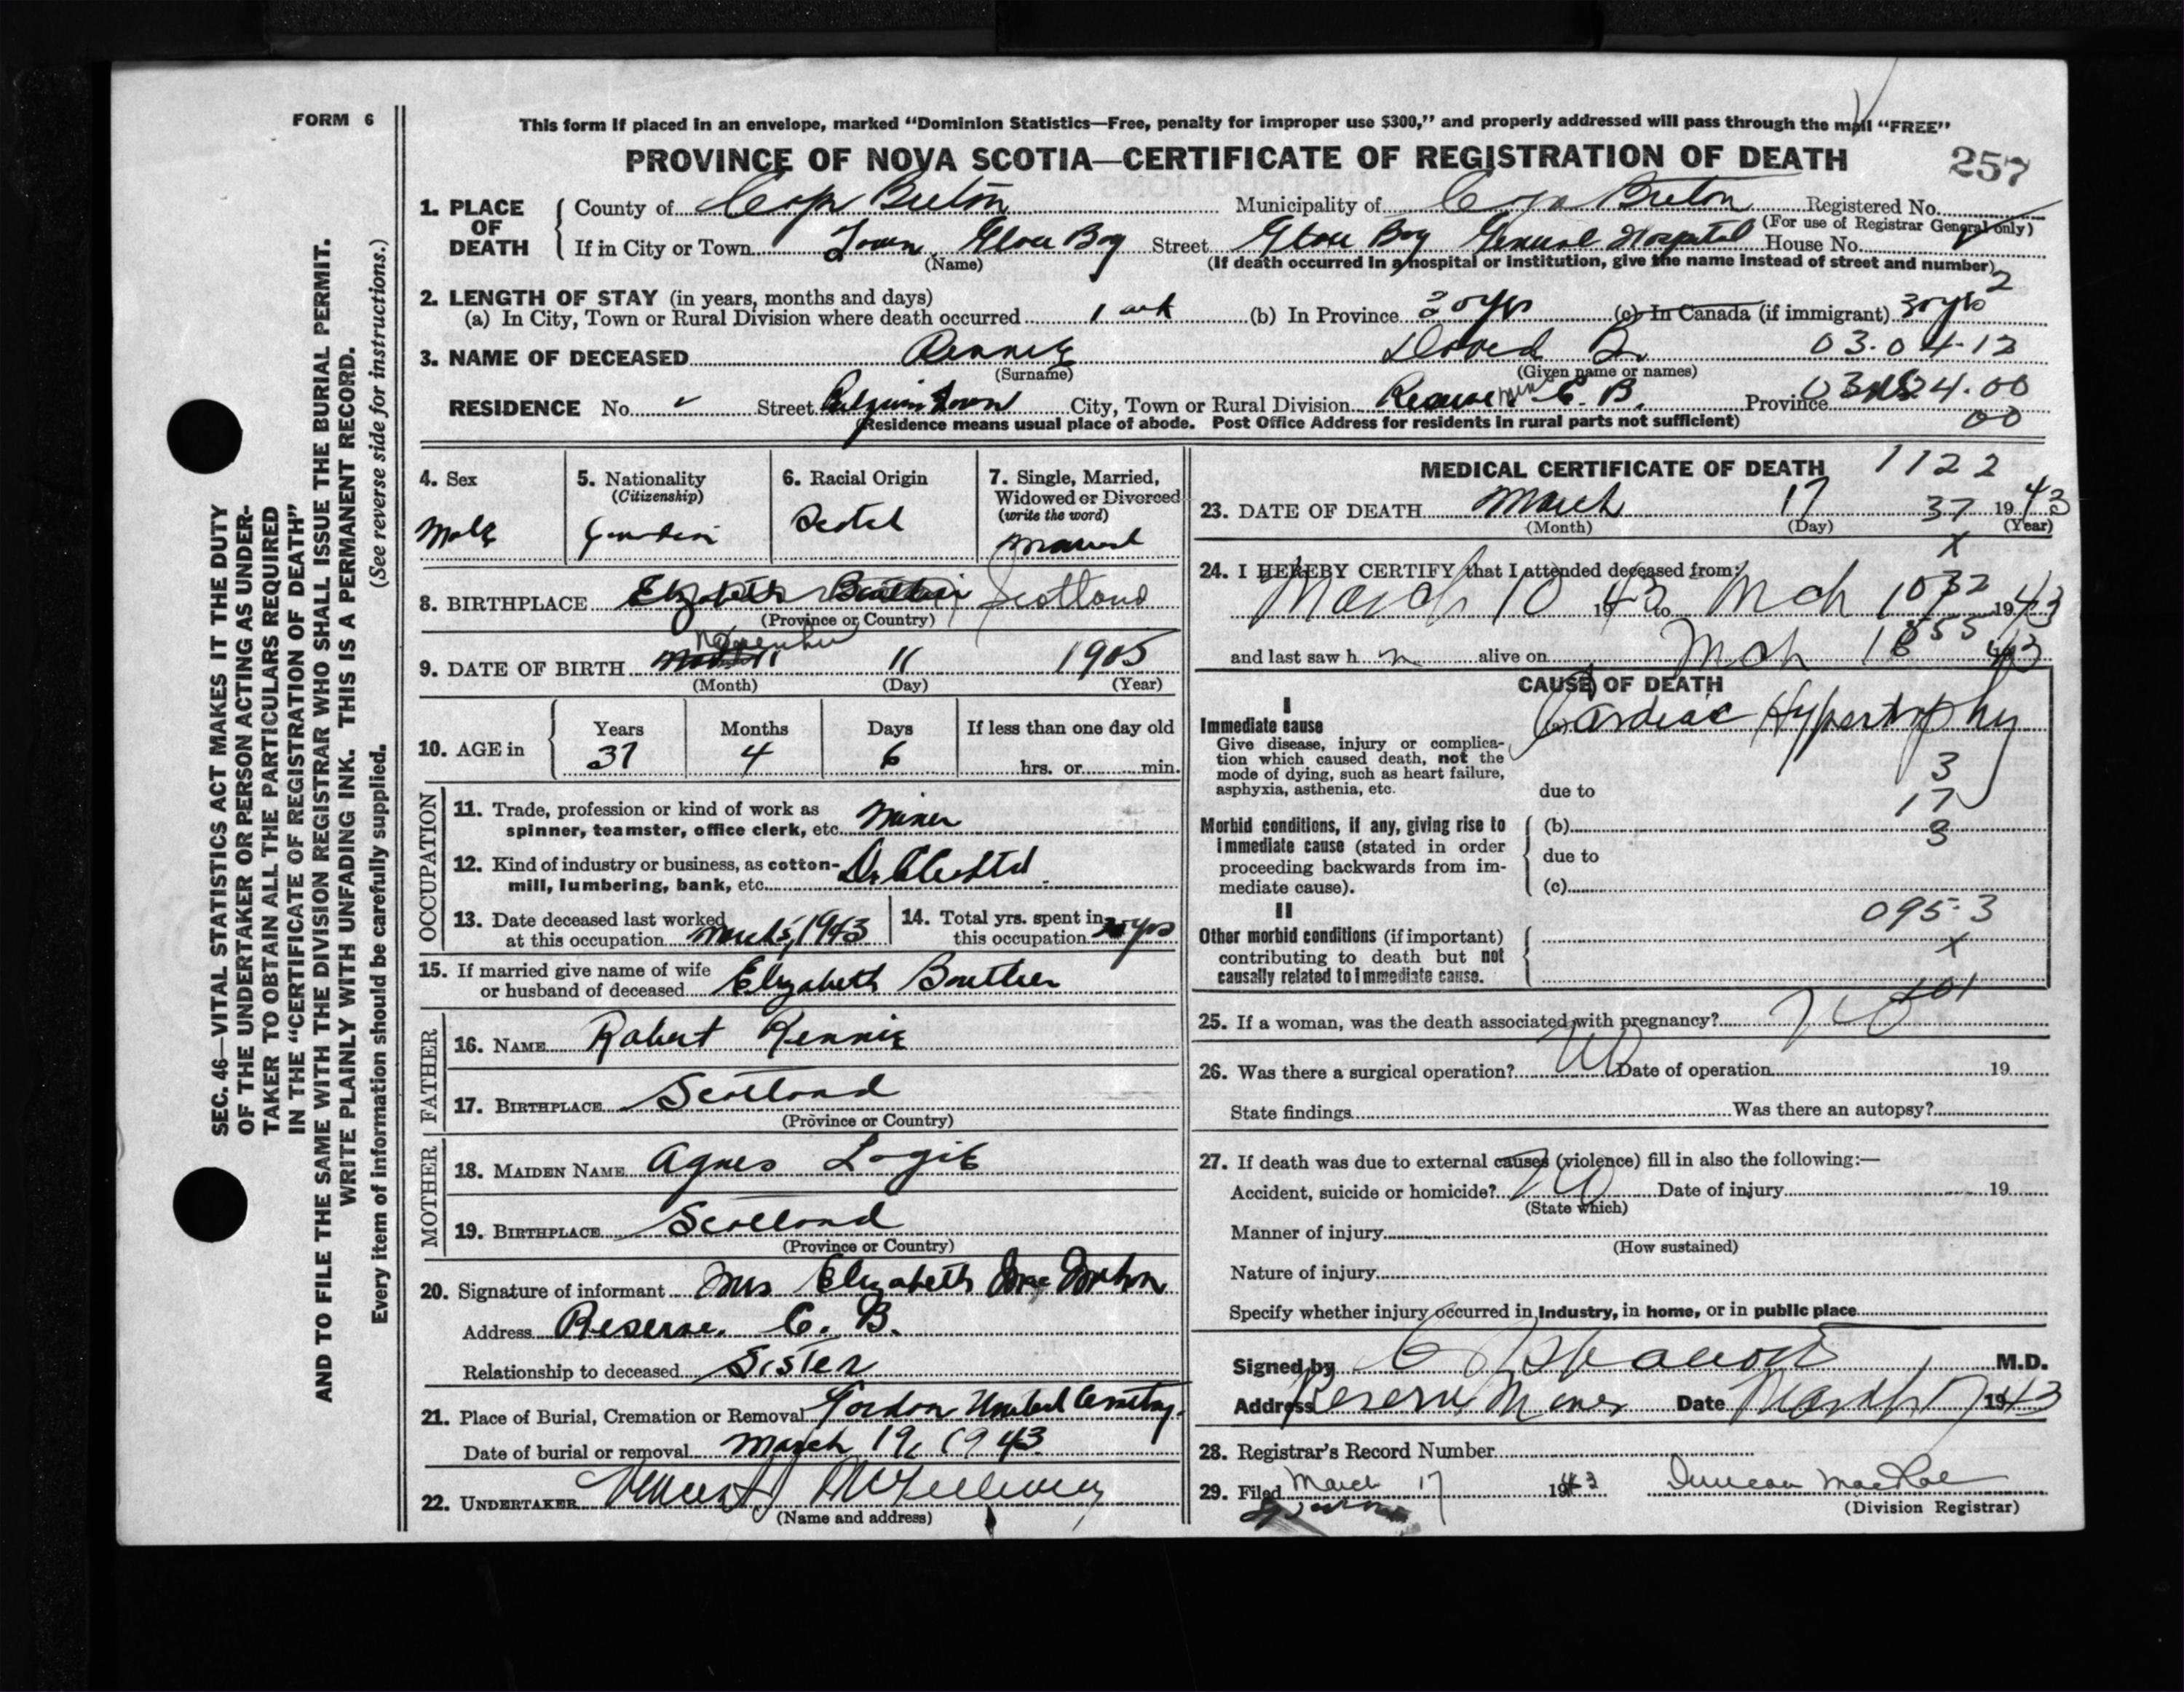 FORM 6
This form if placed in an envelope, marked "Dominion Statistics—Free, penalty for improper use $300," and properly addressed will pass through the mail "FREE"
PROVINCE OF NOVA SCOTIA—CERTIFICATE OF REGISTRATION OF DEATH
257
1. PLACE OF DEATH
County of Cape Breton Municipality of Cape Breton Registered No.
(For use of Registrar General only)
If in City or Town Town Glace Bay Street Glace Bay General Hospital House No.
(Name) (If death occurred in a hospital or institution, give the name instead of street and number)
2. LENGTH OF STAY (in years, months and days)
(a) In City, Town or Rural Division where death occurred 1 wk (b) In Province 20 yrs (c) In Canada (if immigrant) 30 yrs 2
3. NAME OF DECEASED Rennie David 03.04-12
(Surname) (Given name or names)
RESIDENCE No. Street Belgium Town City, Town or Rural Division Reserve C. B. Province 4.00
(Residence means usual place of abode. Post Office Address for residents in rural parts not sufficient)
00
4. Sex
Male
5. Nationality
(Citizenship)
6. Racial Origin
Scotch
7. Single, Married, Widowed or Divorced
(write the word)
Married
8. BIRTHPLACE Elizabeth Boutlier Scotland
(Province or Country)
9. DATE OF BIRTH November 11 1905
(Month) (Day) (Year)
10. AGE in
Years Months Days If less than one day old
37 4 6 hrs. or min.
OCCUPATION
11. Trade, profession or kind of work as spinner, teamster, office clerk, etc. Miner
12. Kind of industry or business, as cotton-mill, lumbering, bank, etc.
13. Date deceased last worked at this occupation March 5, 1943
14. Total yrs. spent in this occupation yrs
15. If married give name of wife or husband of deceased Elizabeth Boutlier
FATHER
16. NAME Robert Rennie
17. BIRTHPLACE Scotland
(Province or Country)
MOTHER
18. MAIDEN NAME Agnes Logie
19. BIRTHPLACE Scotland
(Province or Country)
20. Signature of informant Mrs Elizabeth
Address Reserve, C. B.
Relationship to deceased Sister
21. Place of Burial, Cremation or Removal Gordon United Cemetery.
Date of burial or removal March 19, 1943
22. UNDERTAKER Vincent J
(Name and address)
MEDICAL CERTIFICATE OF DEATH 1122
23. DATE OF DEATH March 17 37 1943
(Month) (Day) (Year)
x
24. I HEREBY CERTIFY that I attended deceased from:
March 10 1943 to Mch 1943
and last saw h m alive on Mch 43
CAUSE OF DEATH
I
Immediate cause
Give disease, injury or complication which caused death, not the mode of dying, such as heart failure, asphyxia, asthenia, etc.
(a) Cardiac Hypertrophy
3
due to
17
Morbid conditions, if any, giving rise to immediate cause (stated in order proceeding backwards from immediate cause).
(b) 3
due to
(c)
II
Other morbid conditions (if important) contributing to death but not causally related to immediate cause.
095-3
x
25. If a woman, was the death associated with pregnancy? No 101
26. Was there a surgical operation? No Date of operation 19
State findings Was there an autopsy?
27. If death was due to external causes (violence) fill in also the following:—
Accident, suicide or homicide? No Date of injury 19
(State which)
Manner of injury
(How sustained)
Nature of injury
Specify whether injury occurred in Industry, in home, or in public place
Signed by M.D.
Address Reserve Mines Date March 17 1943
28. Registrar's Record Number
29. Filed March 17 1943 Duncan MacRae
(Division Registrar)
SEC. 46—VITAL STATISTICS ACT MAKES IT THE DUTY
OF THE UNDERTAKER OR PERSON ACTING AS UNDER-
TAKER TO OBTAIN ALL THE PARTICULARS REQUIRED
IN THE "CERTIFICATE OF REGISTRATION OF DEATH"
AND TO FILE THE SAME WITH THE DIVISION REGISTRAR WHO SHALL ISSUE THE BURIAL PERMIT.
WRITE PLAINLY WITH UNFADING INK. THIS IS A PERMANENT RECORD.
Every item of information should be carefully supplied. (See reverse side for instructions.)